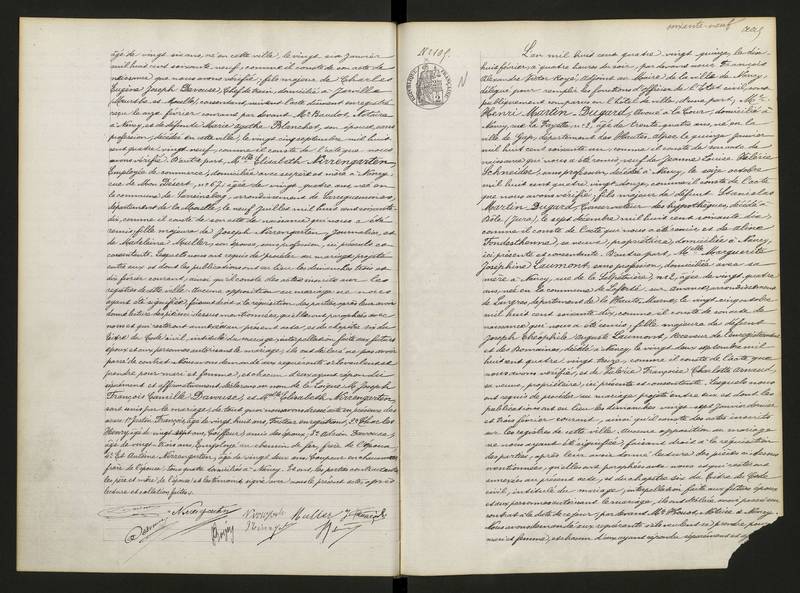 âgé de vingt six ans, né en cette ville, le vingt six Janvier
mil huit cent soixante neuf, comme il conste de son acte de
naissance que nous avons vérifié; fils majeur de Charles
Eugène Joseph Davouse, Chef de train, domicilié à Jarville
consentant, suivant l'acte dûment enregistré
reçu le février courant par devant Me Baudot, Notaire
à Nancy, et de défunte Marie Agathe Blanchot, son épouse, sans
profession, décédée en cette ville, le vingt cinq septembre mil huit
cent quatre vingt neuf, comme il conste de l'acte que nous
avons vérifié. D'autre part, Melle Elisabeth Nirrengarten,
Employée de commerce, domiciliée avec ses père et mère à Nancy,
rue de Mon Désert, no 67, âgée de vingt quatre ans, née en
la commune de arrondissement de Sarreguemines,
département de la Moselle, le neuf Juillet mil huit cent soixante
dix, comme il conste de son acte de naissance qui nous a été
remis, fille majeure de Joseph Nirrengarten, Journalier, et
de Madeleine Muller, son épouse, sans profession, ici présents et
consentants. Lesquels nous ont requis de procéder au mariage projeté
entre eux et dont les publications ont eu lieu les dimanches trois et
dix février courant, ainsi qu'il conste des actes inscrits sur les
registres de cette ville. Aucune opposition au mariage ne nous
ayant été signifiée, faisant droit à la réquisition des parties, après leur avoir
donné lecture des pièces dessus mentionnées, qu'elles ont paraphées avec
nous et qui resteront annexées au présent acte, et du chapitre six du
titre du Code civil, intitulé du mariage, interpellation faite aux futurs
époux et aux personnes autorisant le mariage, ils ont déclaré ne pas avoir
passé de contrat. Nous avons demandé aux requérants s'ils veulent se
prendre pour mari et femme, et chacun d'eux ayant répondu
séparément et affirmativement, déclarons au nom de la loi que Mr Joseph
François Camille Davouse, et Melle Elisabeth Nirrengarten,
sont unis par le mariage; de tout quoi nous avons dressé acte en présence des
sieurs 1° Justin François, âgé de vingt huit ans, Facteur enregistrant, 2° Charles
Henry, âgé de vingt sept ans, Coiffeur, amis des époux, 3° Adrien Davouse,
âgé de vingt trois ans, Employé au chemin de fer, frère de l'Epoux,
4° Et Antoine Nirrengarten, âgé de vingt deux ans, Coupeur en chaussures,
frère de l'épouse. Tous quatre domiciliés à Nancy. Et ont, les parties contractantes
les père et mère de l'épouse et les témoins signé avec nous le présent acte, après
lecture et collation faites.
Nirrengarten Muller François
No 105
N
soixante-neuf
L'an mil huit cent quatre vingt quinze, le dix
huit février, à quatre heures du soir, par devant nous François
Alexandre Victor Royé, Adjoint au Maire de la ville de Nancy,
délégué pour remplir les fonctions d'officier de l'Etat civil, ont
publiquement comparu en l'hôtel de ville, d'une part, Mr
Henri Martin Dugard, Avoué à la Cour, domicilié à
Nancy, rue La Fayette, no 2, âgé de trente quatre ans, né en la
ville de Gap, département des Hautes Alpes, le quinze Janvier
mil huit cent soixante un, comme il conste de son acte de
naissance qui nous a été remis, veuf de Jeanne Louise Valérie
Schneider, sans profession, décédée à Nancy, le seize octobre
mil huit cent quatre vingt douze, comme il conste de l'acte
que nous avons vérifié, fils majeur de défunt
Martin Dugard, Conservateur des hypothèques, décédé à
Dôle (Jura), le sept décembre mil huit cent soixante dix,
comme il conste de l'acte qui nous a été remis et de
sa veuve, propriétaire, domiciliée à Nancy,
ici présente et consentante. D'autre part, Melle Marguerite
Joséphine Laumont, sans profession, domiciliée avec sa
mère à Nancy, rue de la Salpêtrière, no 2, âgée de vingt quatre
ans, née en la commune de Laferté sur Amance, arrondissement
de Langres, département de la Haute Marne, le vingt cinq octobre
mil huit cent soixante dix, comme il conste de son acte de
naissance qui nous a été remis, fille majeure de défunt
Joseph Théophile Auguste Laumont, Receveur de l'enregistrement
et des Domaines, décédé à Nancy, le vingt deux septembre mil
huit cent quatre vingt treize, comme il conste de l'acte que
nous avons vérifié, et de Valérie Françoise Charlotte
sa veuve, propriétaire, ici présente et consentante. Lesquels nous
ont requis de procéder au mariage projeté entre eux et dont les
publications ont eu lieu les dimanches vingt sept Janvier dernier
et trois février courant, ainsi qu'il conste des actes inscrits
sur les registres de cette ville. Aucune opposition au mariage
ne nous ayant été signifiée, faisant droit à la réquisition
des parties, après leur avoir donné lecture des pièces ci-dessus
mentionnées, qu'elles ont paraphées avec nous et qui resteront
annexées au présent acte, et du chapitre six du titre du Code
civil, intitulé du mariage, interpellation faite aux futurs époux
et aux personnes autorisant le mariage, ils ont déclaré avoir passé un
contrat à la date de ce jour, par devant Me Notaire à Nancy.
Nous avons demandé aux requérants s'ils veulent se prendre pour
mari et femme, et chacun d'eux ayant répondu séparément et